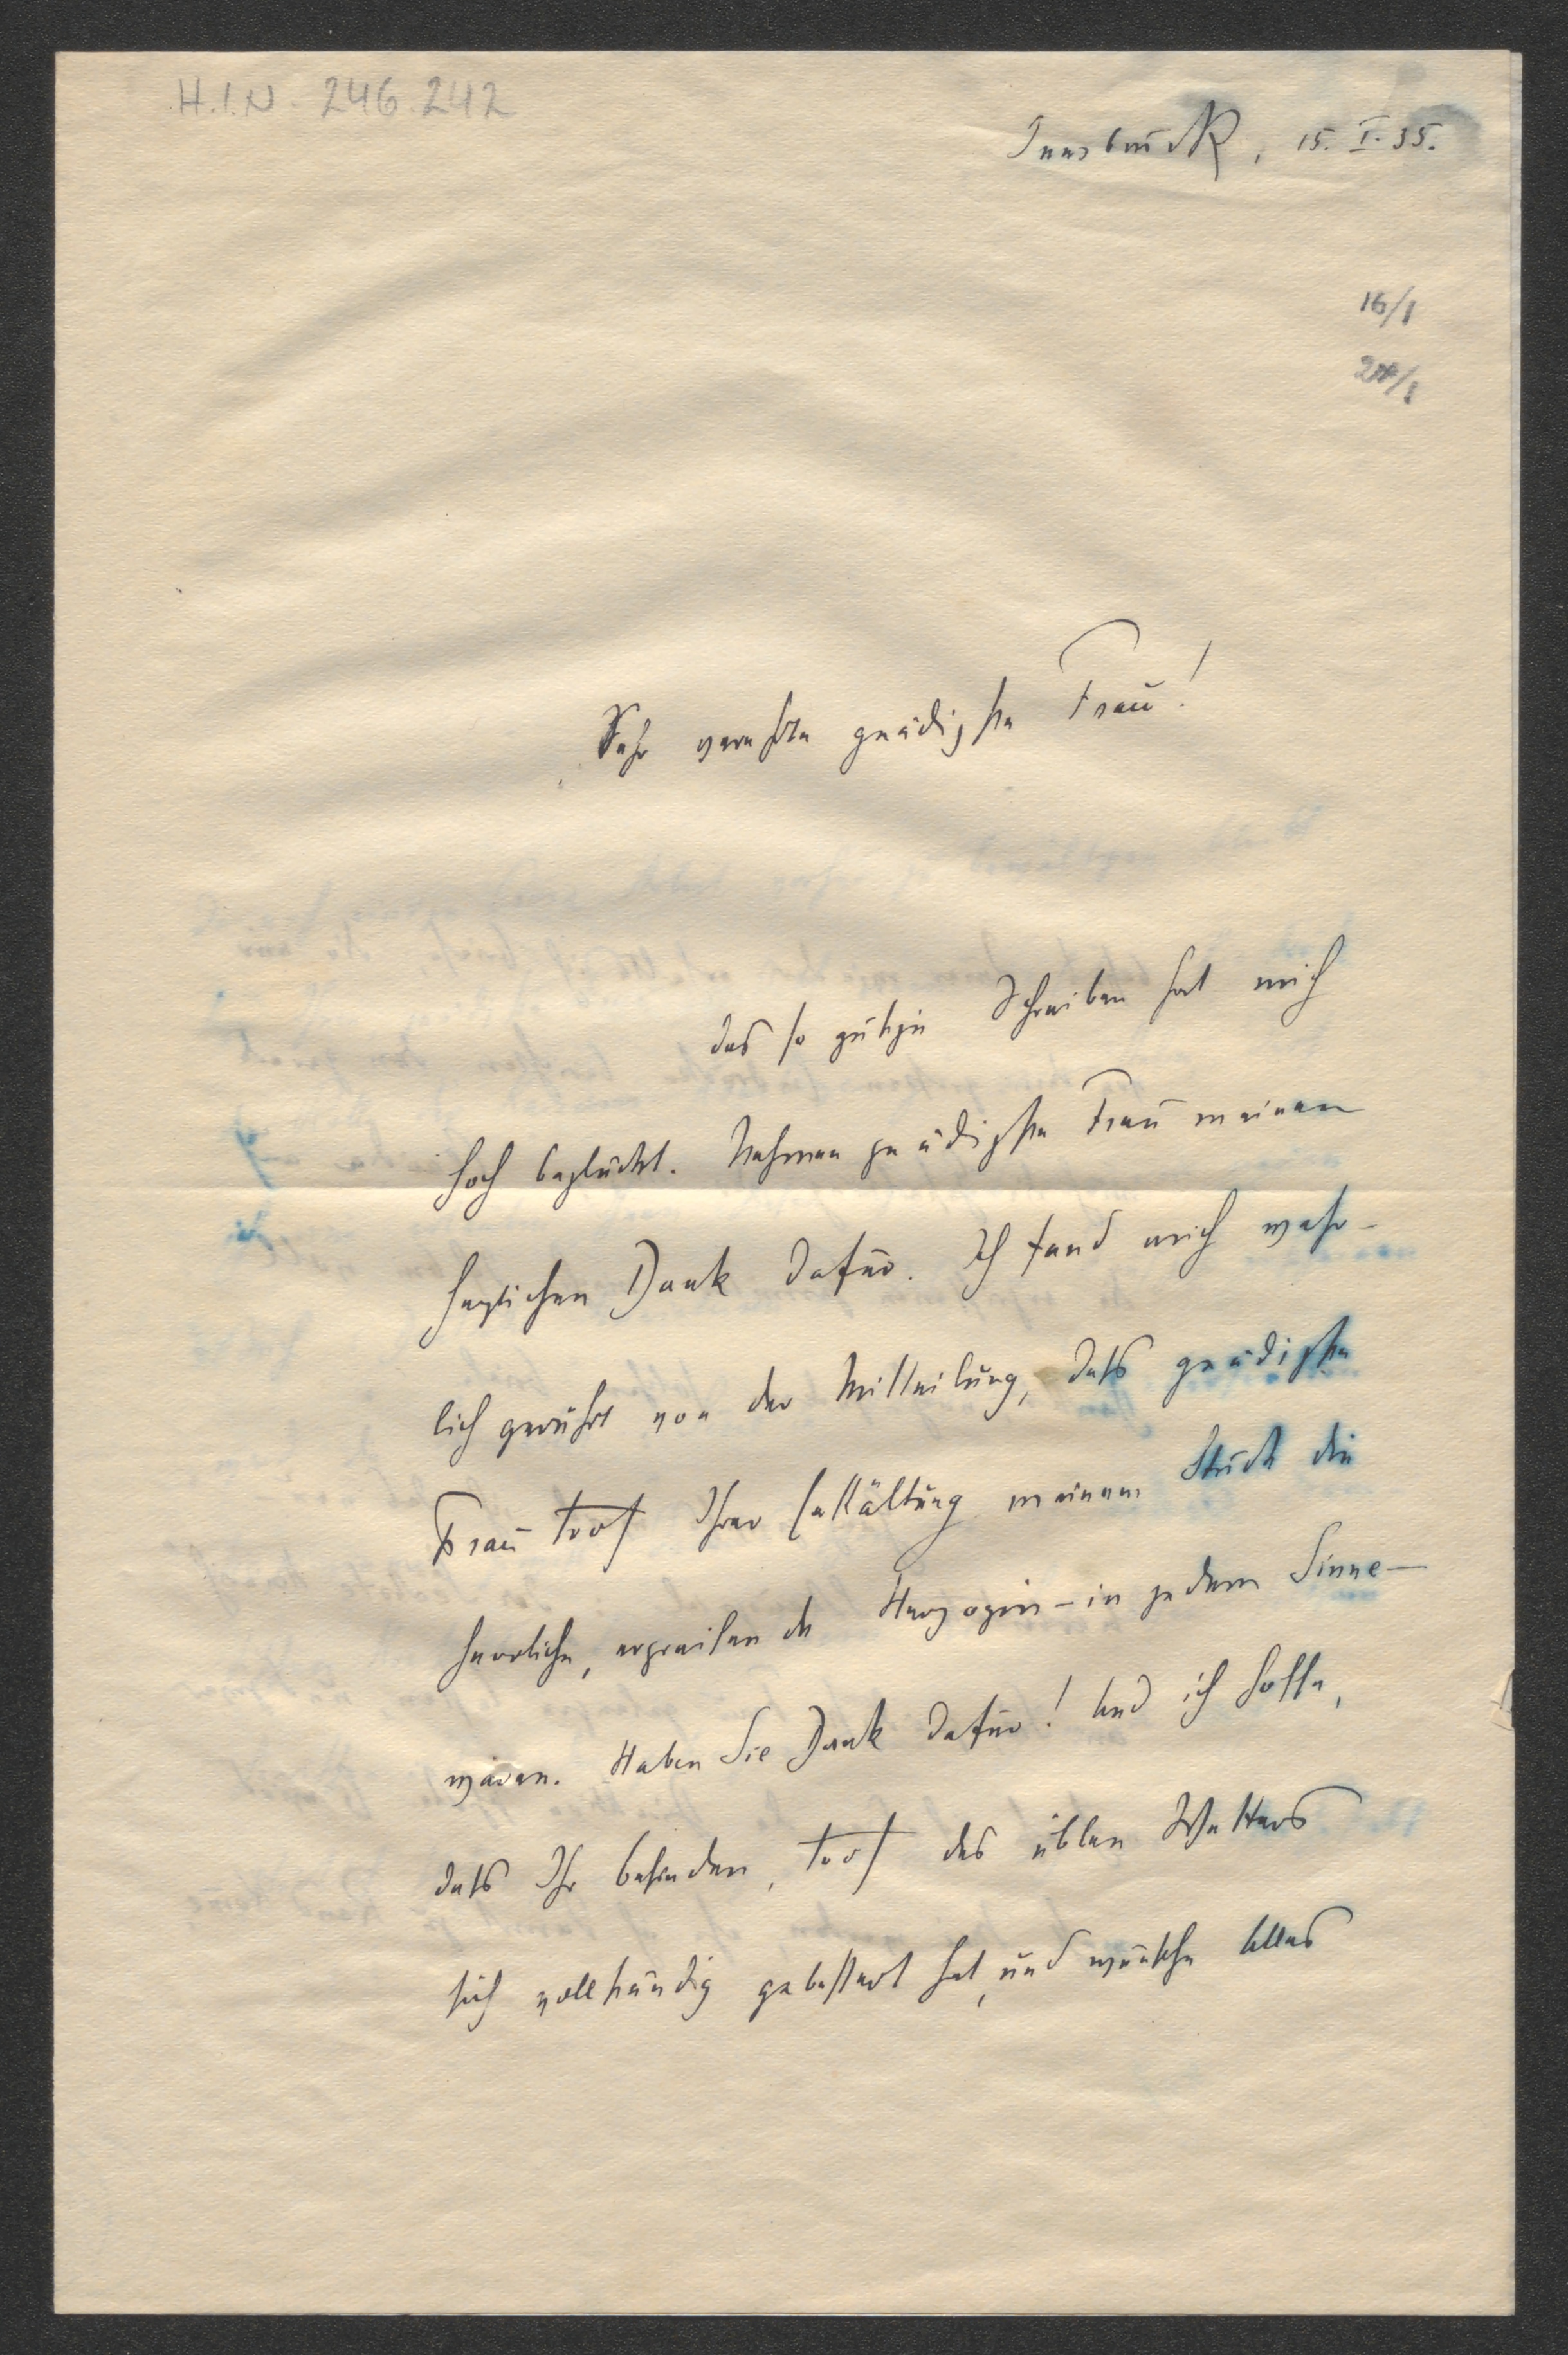 H.I.N. 246.242
Innsbruck, 15. I. 35.
16/1
Sehr verehrte gnädigste Frau!
das so gütige Schreiben hat mich
hoch beglückt. Nehmen gnädigste Frau meinen
herzlichen Dank dafür. Ich fand mich wahr-
lich gerührt von der Mitteilung, dass gnädigste
Frau trotz Ihrer Erkältung meinem Stück die
herrliche, ergreifende Herzogin – in jedem Sinne –
waren. Haben Sie Dank dafür! Und ich hoffe,
dass Ihr befinden, trotz des üblen Wetters
sich vollständig gebessert hat, und wünsche Alles